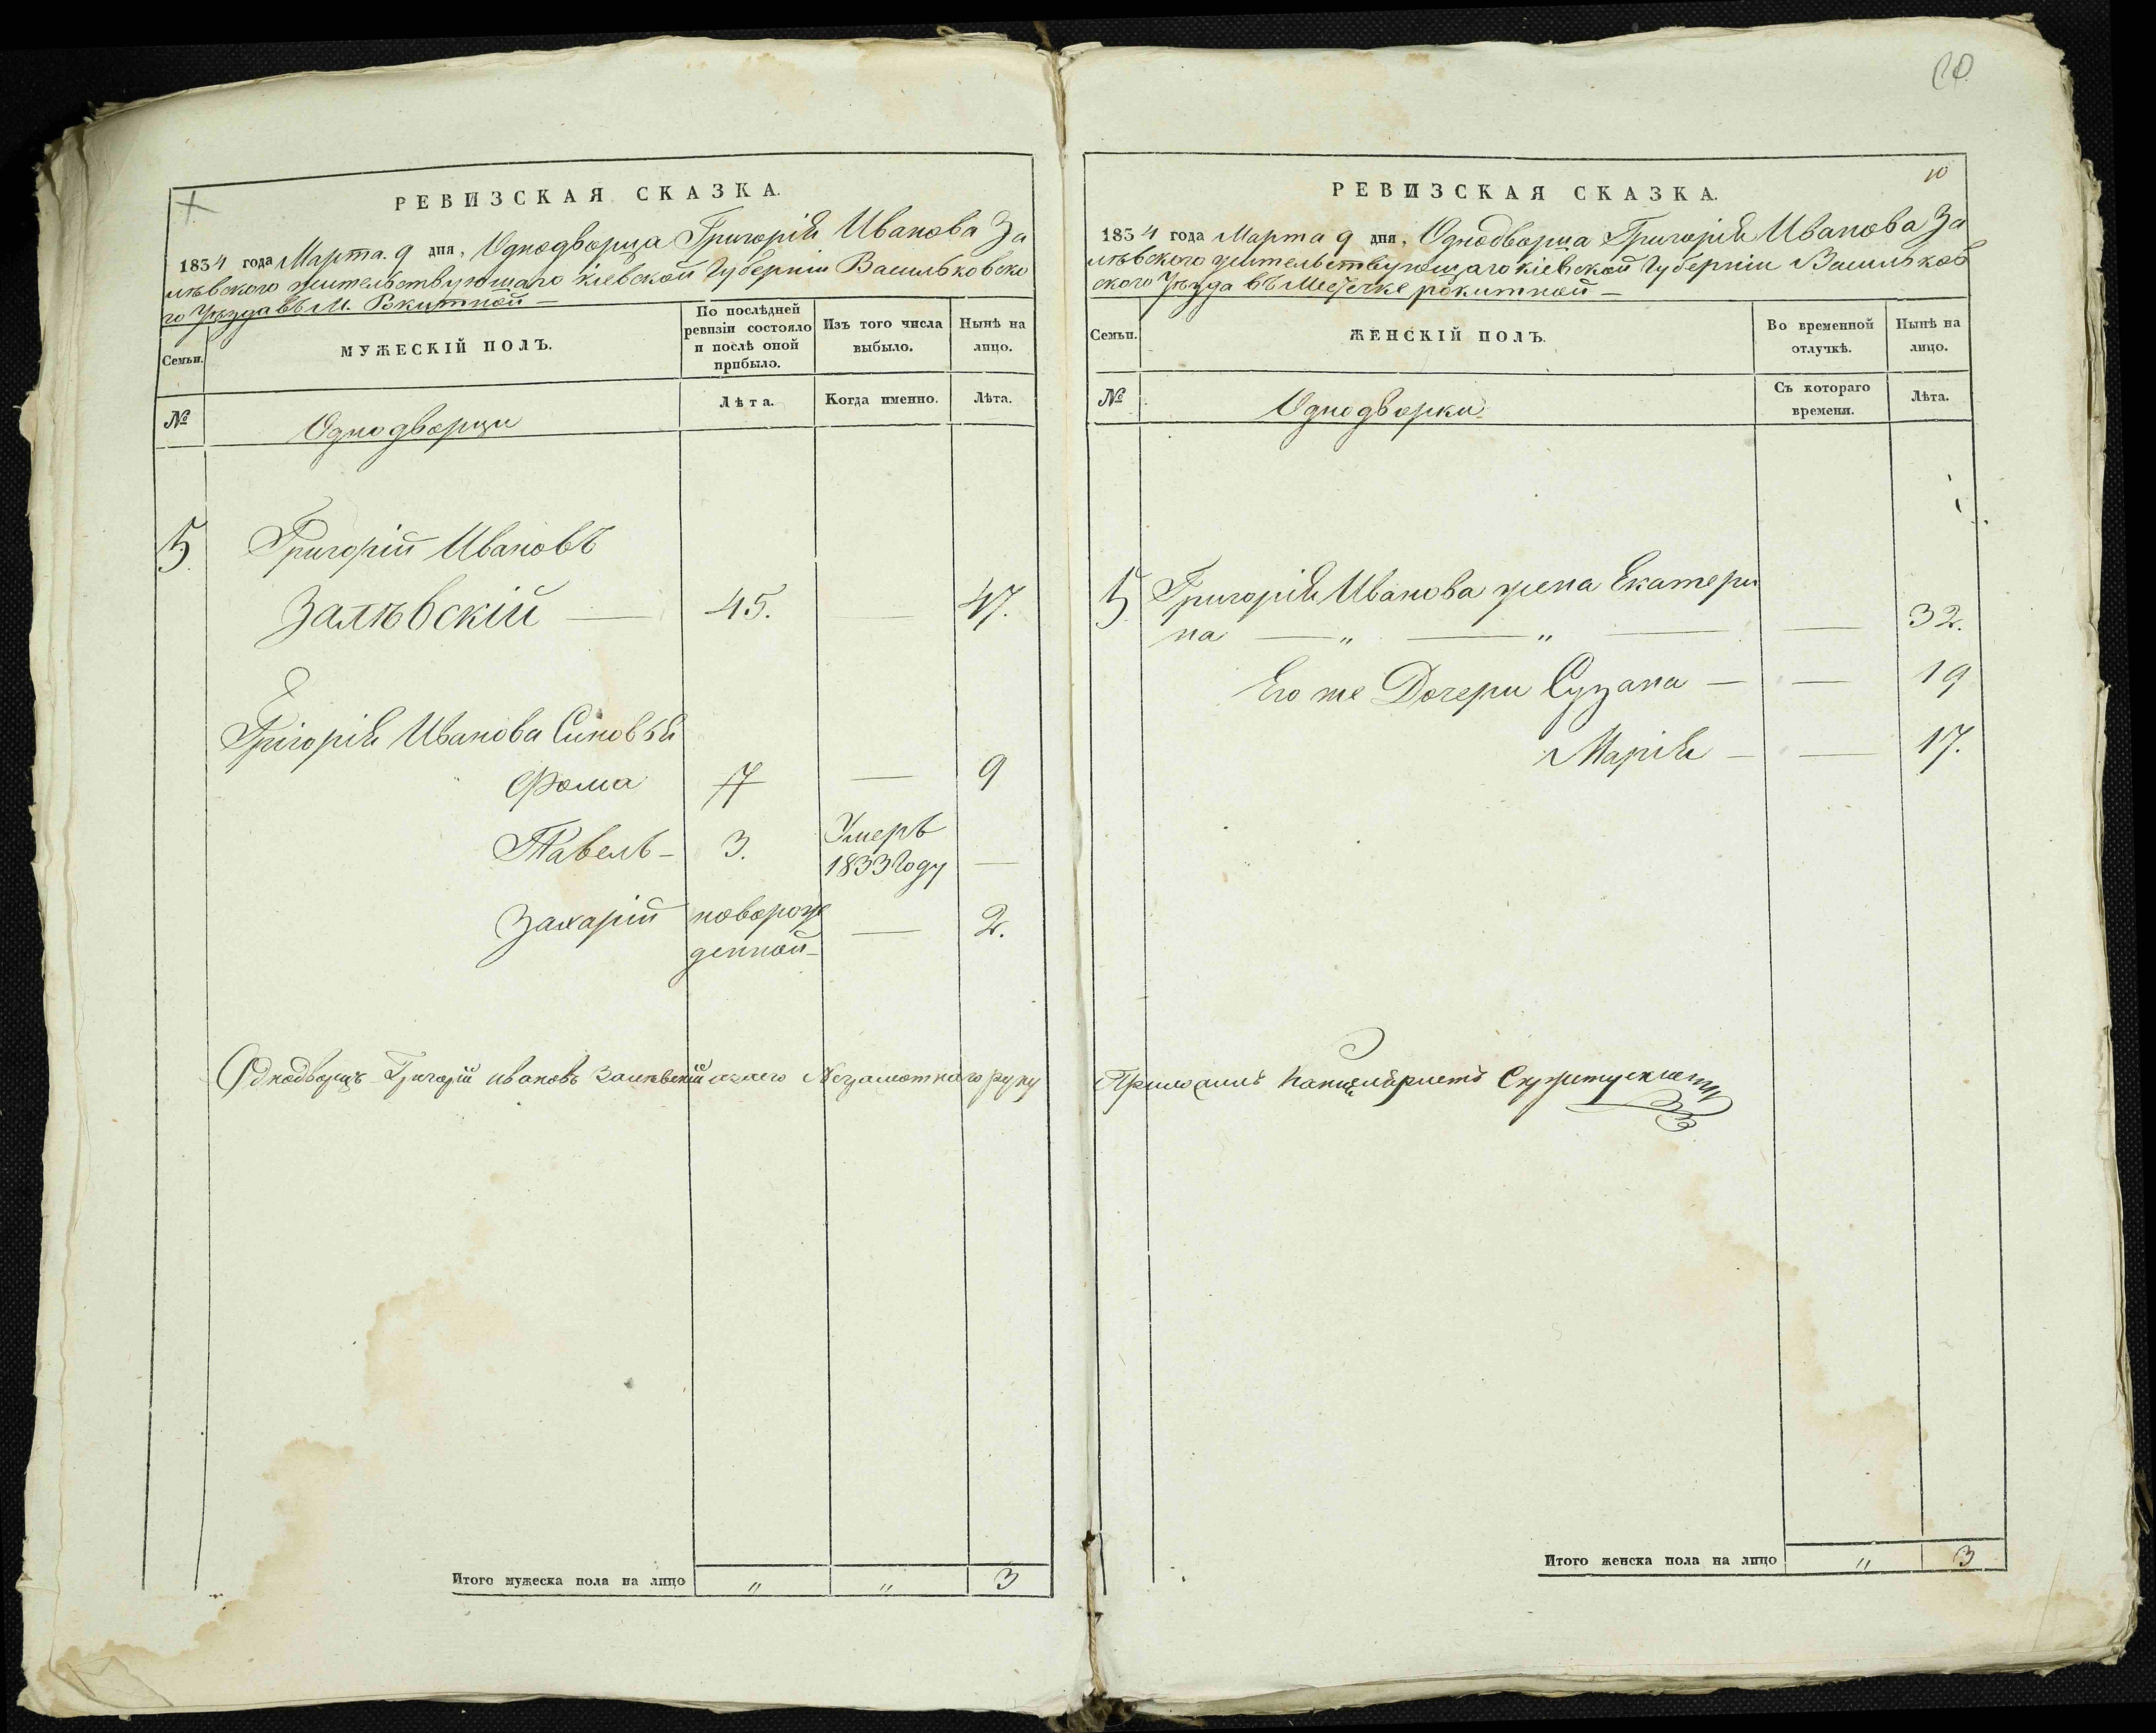 10
РЕВИЗСКАЯ СКАЗКА.
1834 года Марта 9 дня, Однодворца Григорія Иванова За
лѣвского жительствующаго кіевской Губерніи Васильковско
го Уѣзда въ М. Ркитной —
Семьи.
МУЖЕСКІЙ ПОЛЪ.
По послѣдней
ревизіи состояло
и послѣ оной
прибыло.
Изъ того числа
выбыло.
Нынѣ на
лицо.
№
Однодворци
Лѣта.
Когда именно.
Лѣта.
5 Григорій Ивановъ
Залѣвскій — 45. — 47.
Григорія Иванова Синовья
Фома 7 — 9
Павелъ — 3. Умеръ
1833 Году —
Захарій новорож
денной — — 2.
Однодворецъ Григорій ивановъ Залѣвскій азанего Неграмотнаго руку
Итого мужеска пола на лицо " " 3
РЕВИЗСКАЯ СКАЗКА.
10
1834 года Марта 9 дня, Однодворца Григорія Иванова За
лѣвского жительствующаго кіевской Губерніи Васильков
ского Уѣзда въ Местечке рокитной —
Семьи.
ЖЕНСКІЙ ПОЛЪ.
Во временной
отлучкѣ.
Нынѣ на
лицо.
№
Однодворки
Съ котораго
времени.
Лѣта.
5 Григорія Иванова жена Екатери
на — " — " — — 32.
Его же Дочери Сузана — — 19
Марія — — 17.
Приложилъ Канцеляристъ
Итого женска пола на лицо " 3